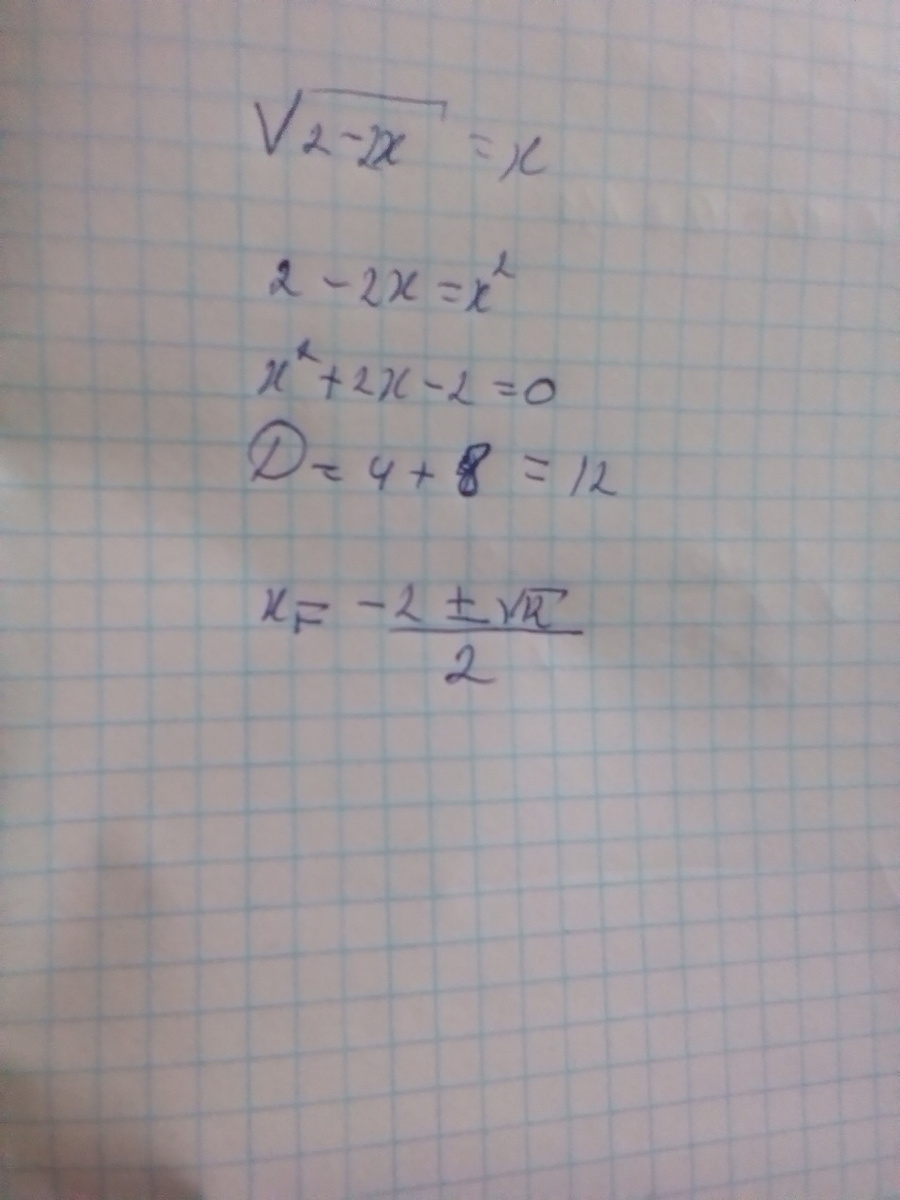 √(2-2x) = x
2 - 2x = x²
x² + 2x - 2 = 0
D = 4 + 8 = 12
x = (-2 ± √12) / 2